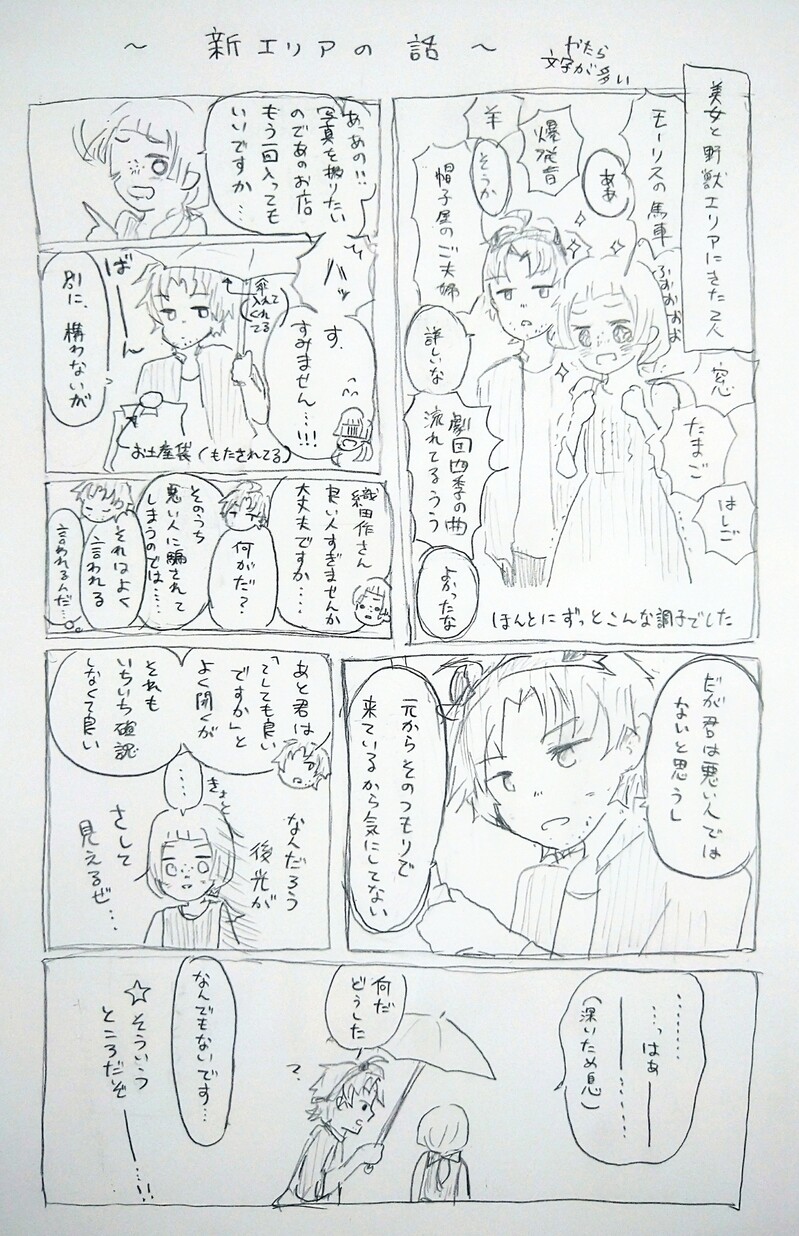 ～ 新エリアの話 ～
やたら
文字が多い
美女と野獣エリアにきた2人
モーリスの馬車
ふおおおお
ああ
爆発音
羊
そうか
帽子屋のご夫婦
詳しいな
窓
たまご
はしご
劇団四季の曲
流れてるうう
よかったな
ほんとにずっとこんな調子でした
あっあの!!
写真を撮りたい
のであのお店
もう一回入っても
いいですか…
ハッ
す、
すみません…!!!
傘
入れて
くれてる
ばーーん
別に、構わないが
お土産袋(もたされてる)
織田作さん
良い人すぎませんか
大丈夫ですか….
何がだ?
そのうち
悪い人に騙されて
しまうのでは……
それはよく
言われる
言われるんだ…
だが君は悪い人では
ないと思うし
元からそのつもりで
来ているから気にしてない
あと君は
「〜しても良い
ですか」と
よく聞くが
それも
いちいち確認
しなくて良い
….
きょと
なんだろう
後光が
さして
見えるぜ…
………
…っはぁーー
ーー……
(深いため息)
何だ
どうした
?
なんでもないです…
☆そういう
ところだぞーー…!!